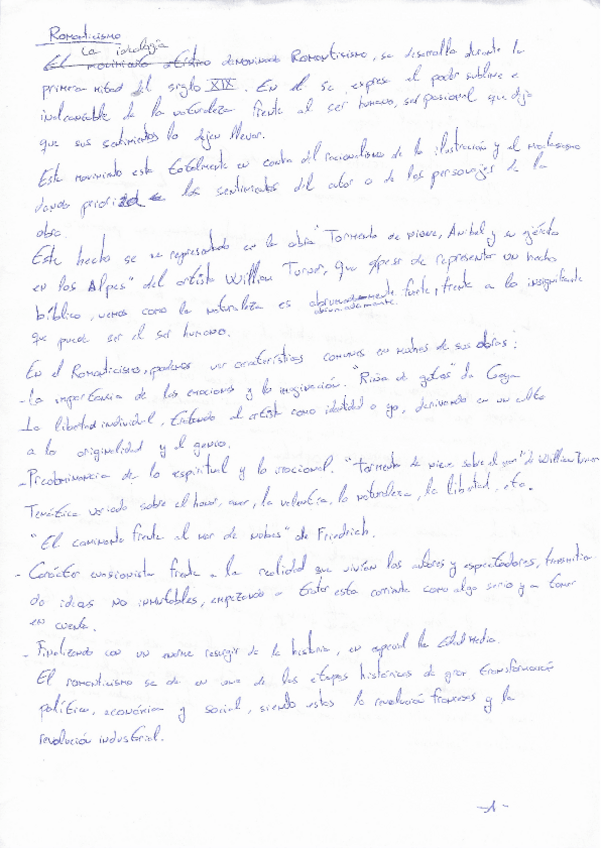 Romanticismo
La ideología
El movimiento artístico denominado Romanticismo, se desarrolla durante la
primera mitad del siglo XIX. En el se expresa el poder sublime e
inalcanzable de la naturaleza frente al ser humano, ser pasional que deja
que sus sentimientos lo dejen llevar.
Este movimiento esta totalmente en contra del racionalismo de la ilustración y el
dando prioridad a los sentimientos del autor o de los personajes de la
obra.
Este hecho se ve representado en la obra "Tormenta de nieve, Anibal y su ejército
en los Alpes" del artista William Turner, que apesar de representar un hecho
bíblico, vemos como la naturaleza es fuerte, frente a lo insignificante
abrumadoramente
que puede ser el ser humano.
En el Romanticismo, podemos ver características comunes en muchas de sus obras:
- La importancia de las emociones y la imaginación. "Riña de gatos" de Goya
- La libertad individual, tratando al artista como identidad o yo, derivando en un culto
a la originalidad y el genio.
- Predominancia de lo espiritual y lo irracional. "Tormenta de nieve sobre el mar" de William Turner
Temática variada sobre el honor, amor, la valentía, la naturaleza, la libertad, etc.
"El caminante frente al mar de nubes" de Friedrich.
- Carácter evasionista frente a la realidad que vivían los autores y espectadores, transmitien
do ideas no inmutables, empezando a tratar esta corriente como algo serio y a tener
en cuenta.
- Finalizando con un enorme resurgir de la historia, en especial la Edad Media.
El romanticismo se da en una de las etapas históricas de gran transformación
política, económica y social, siendo estas la revolución francesa y la
revolución industrial.
-1-